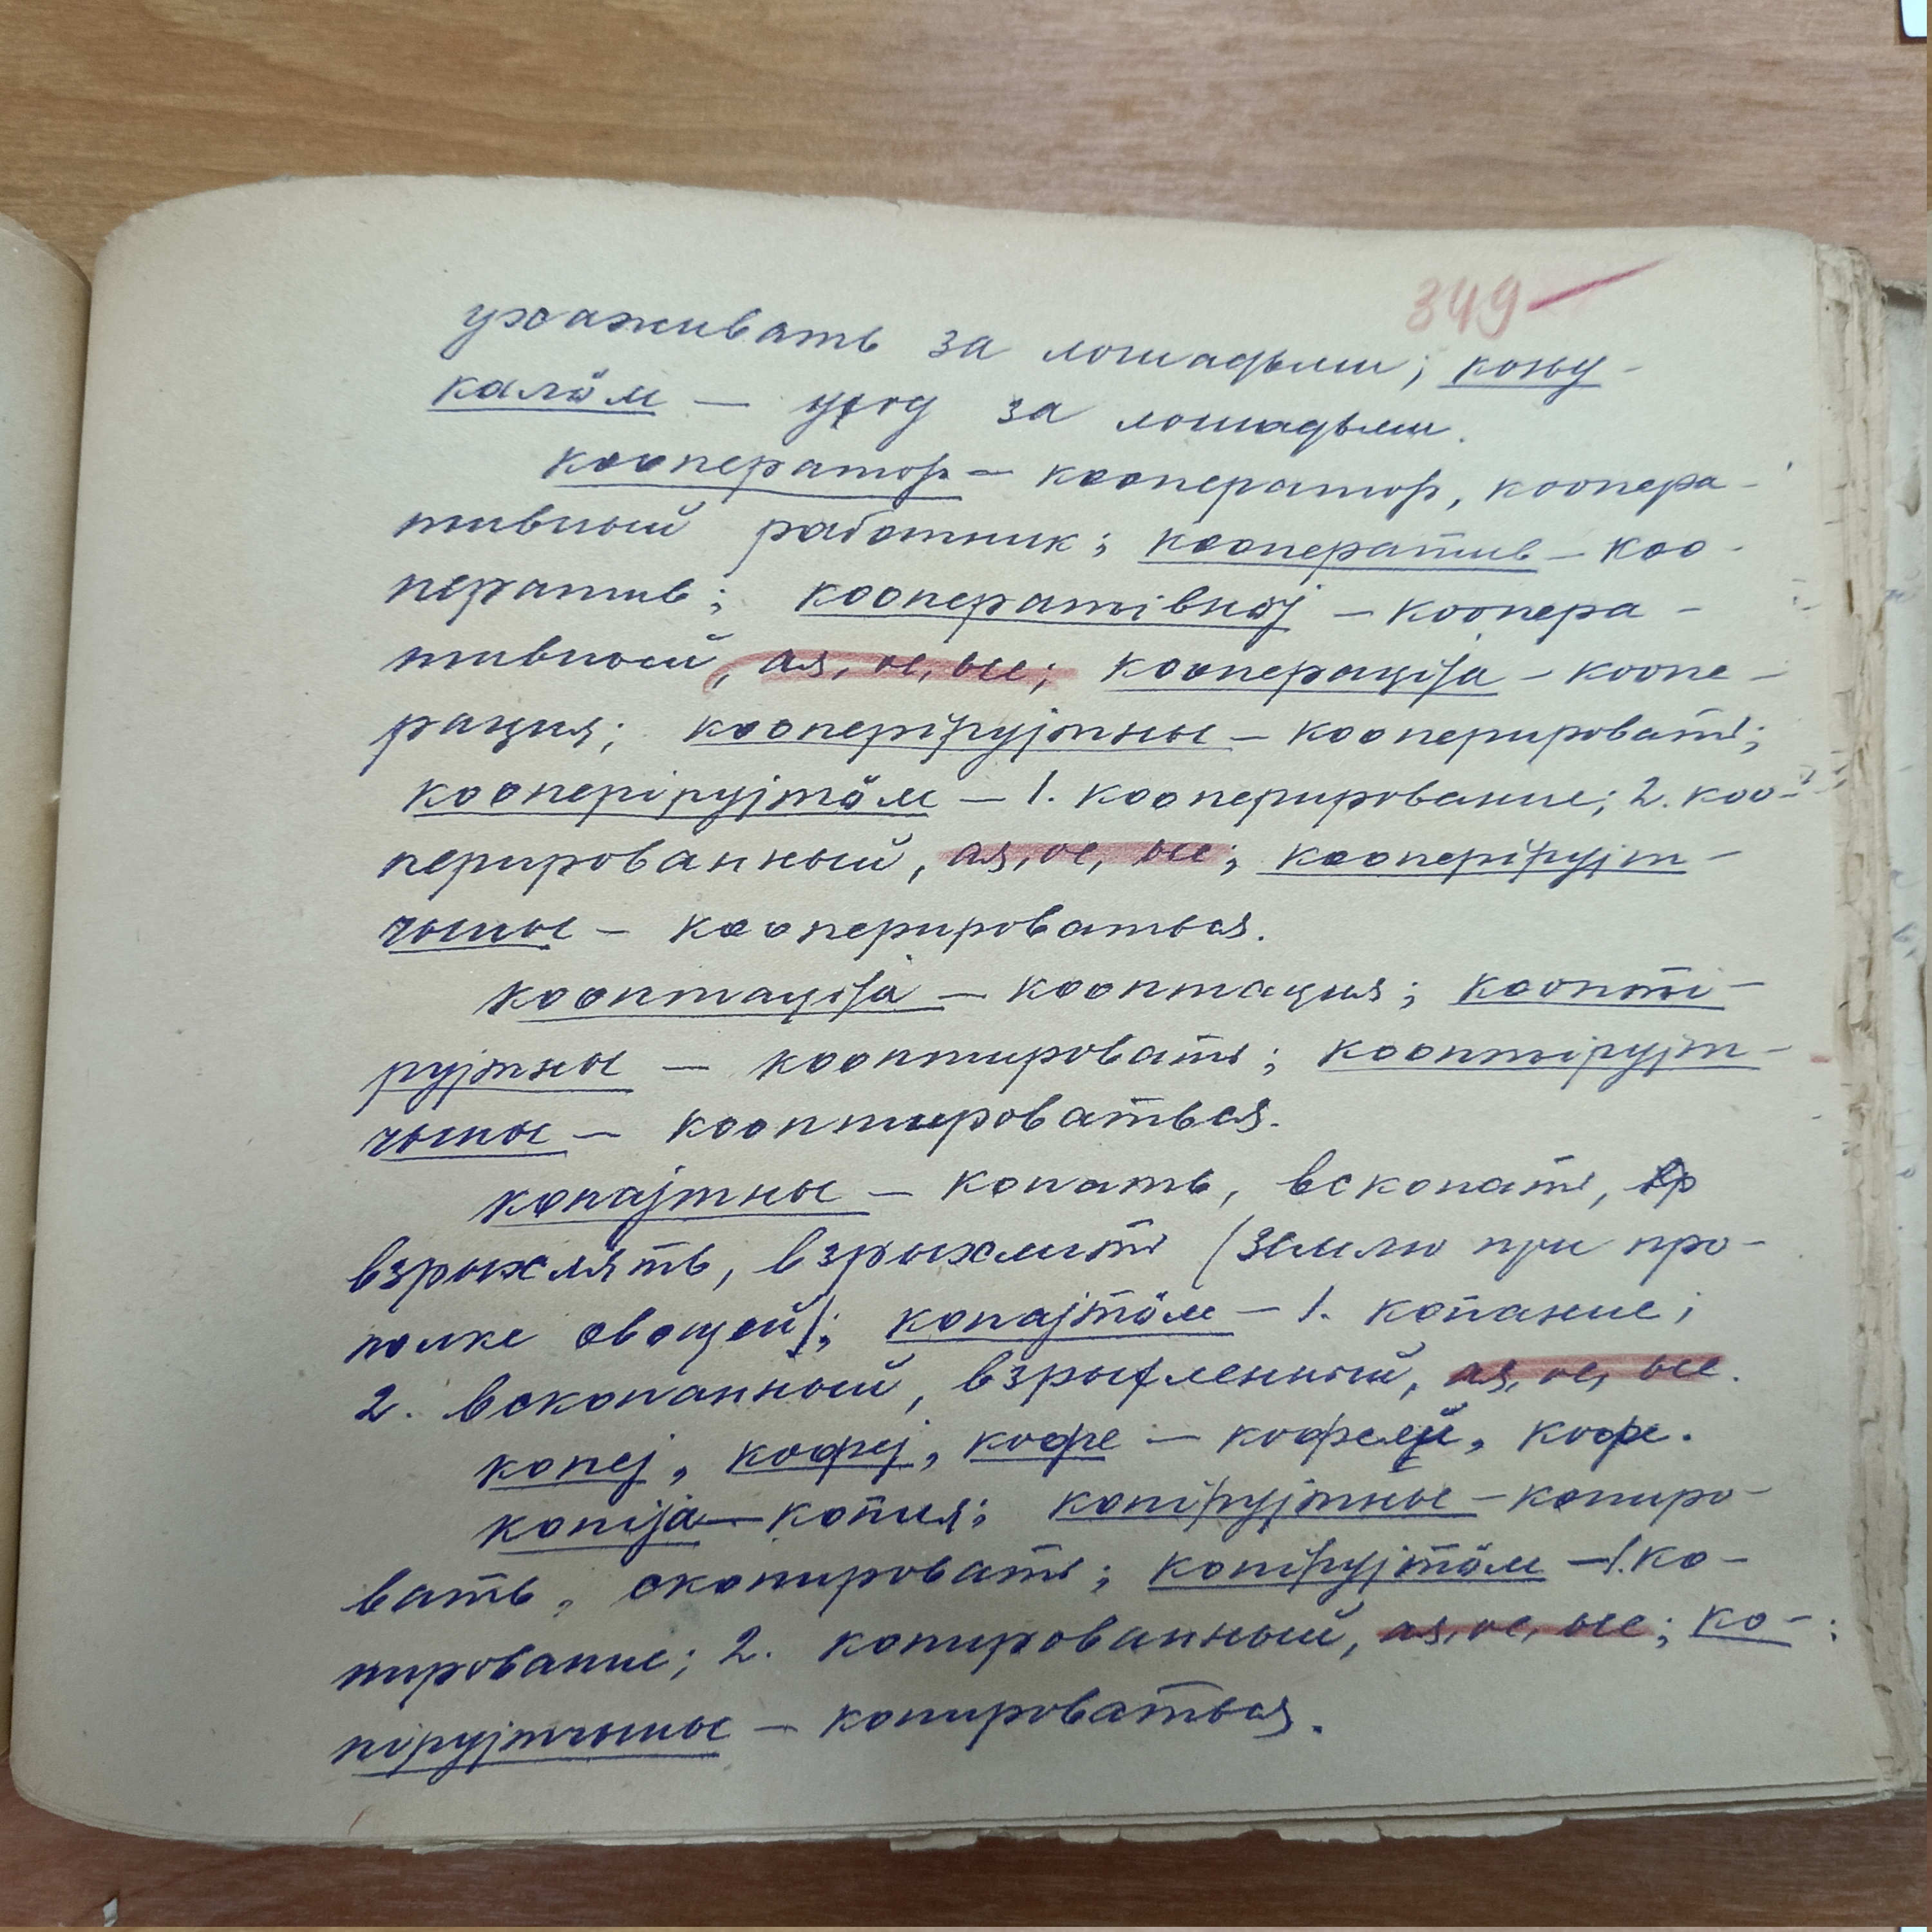 349
ухаживать за лошадьми; коњу-
калӧм — уход за лошадьми.
кооператор — кооператор, коопера-
тивный работник; кооператив — коо-
ператив; кооперативнӧј — коопера-
тивный, ая, ое, ые; кооперација — коопе-
рация; кооперірујтны — кооперировать;
кооперірујтӧм — 1. кооперирование; 2. коо-
перированный, ая, ое, ые; кооперірујт-
чыны — кооперироваться.
кооптаціја — кооптация; коопті-
рујтны — кооптировать; кооптірујт-
чыны — кооптироваться.
копајтны — копать, вскопать,
взрыхлять, взрыхлить (землю при про-
полке овощей); копајтӧм — 1. копание;
2. вскопанный, взрыхленный, ая, ое, ые.
копеј, кофеј, кофе — кофей, кофе.
копіја — копия; копірујтны — копиро-
вать, скопировать; копірујтӧм — 1. ко-
пирование; 2. копированный, ая, ое, ые; ко-
пірујтчыны — копироваться.